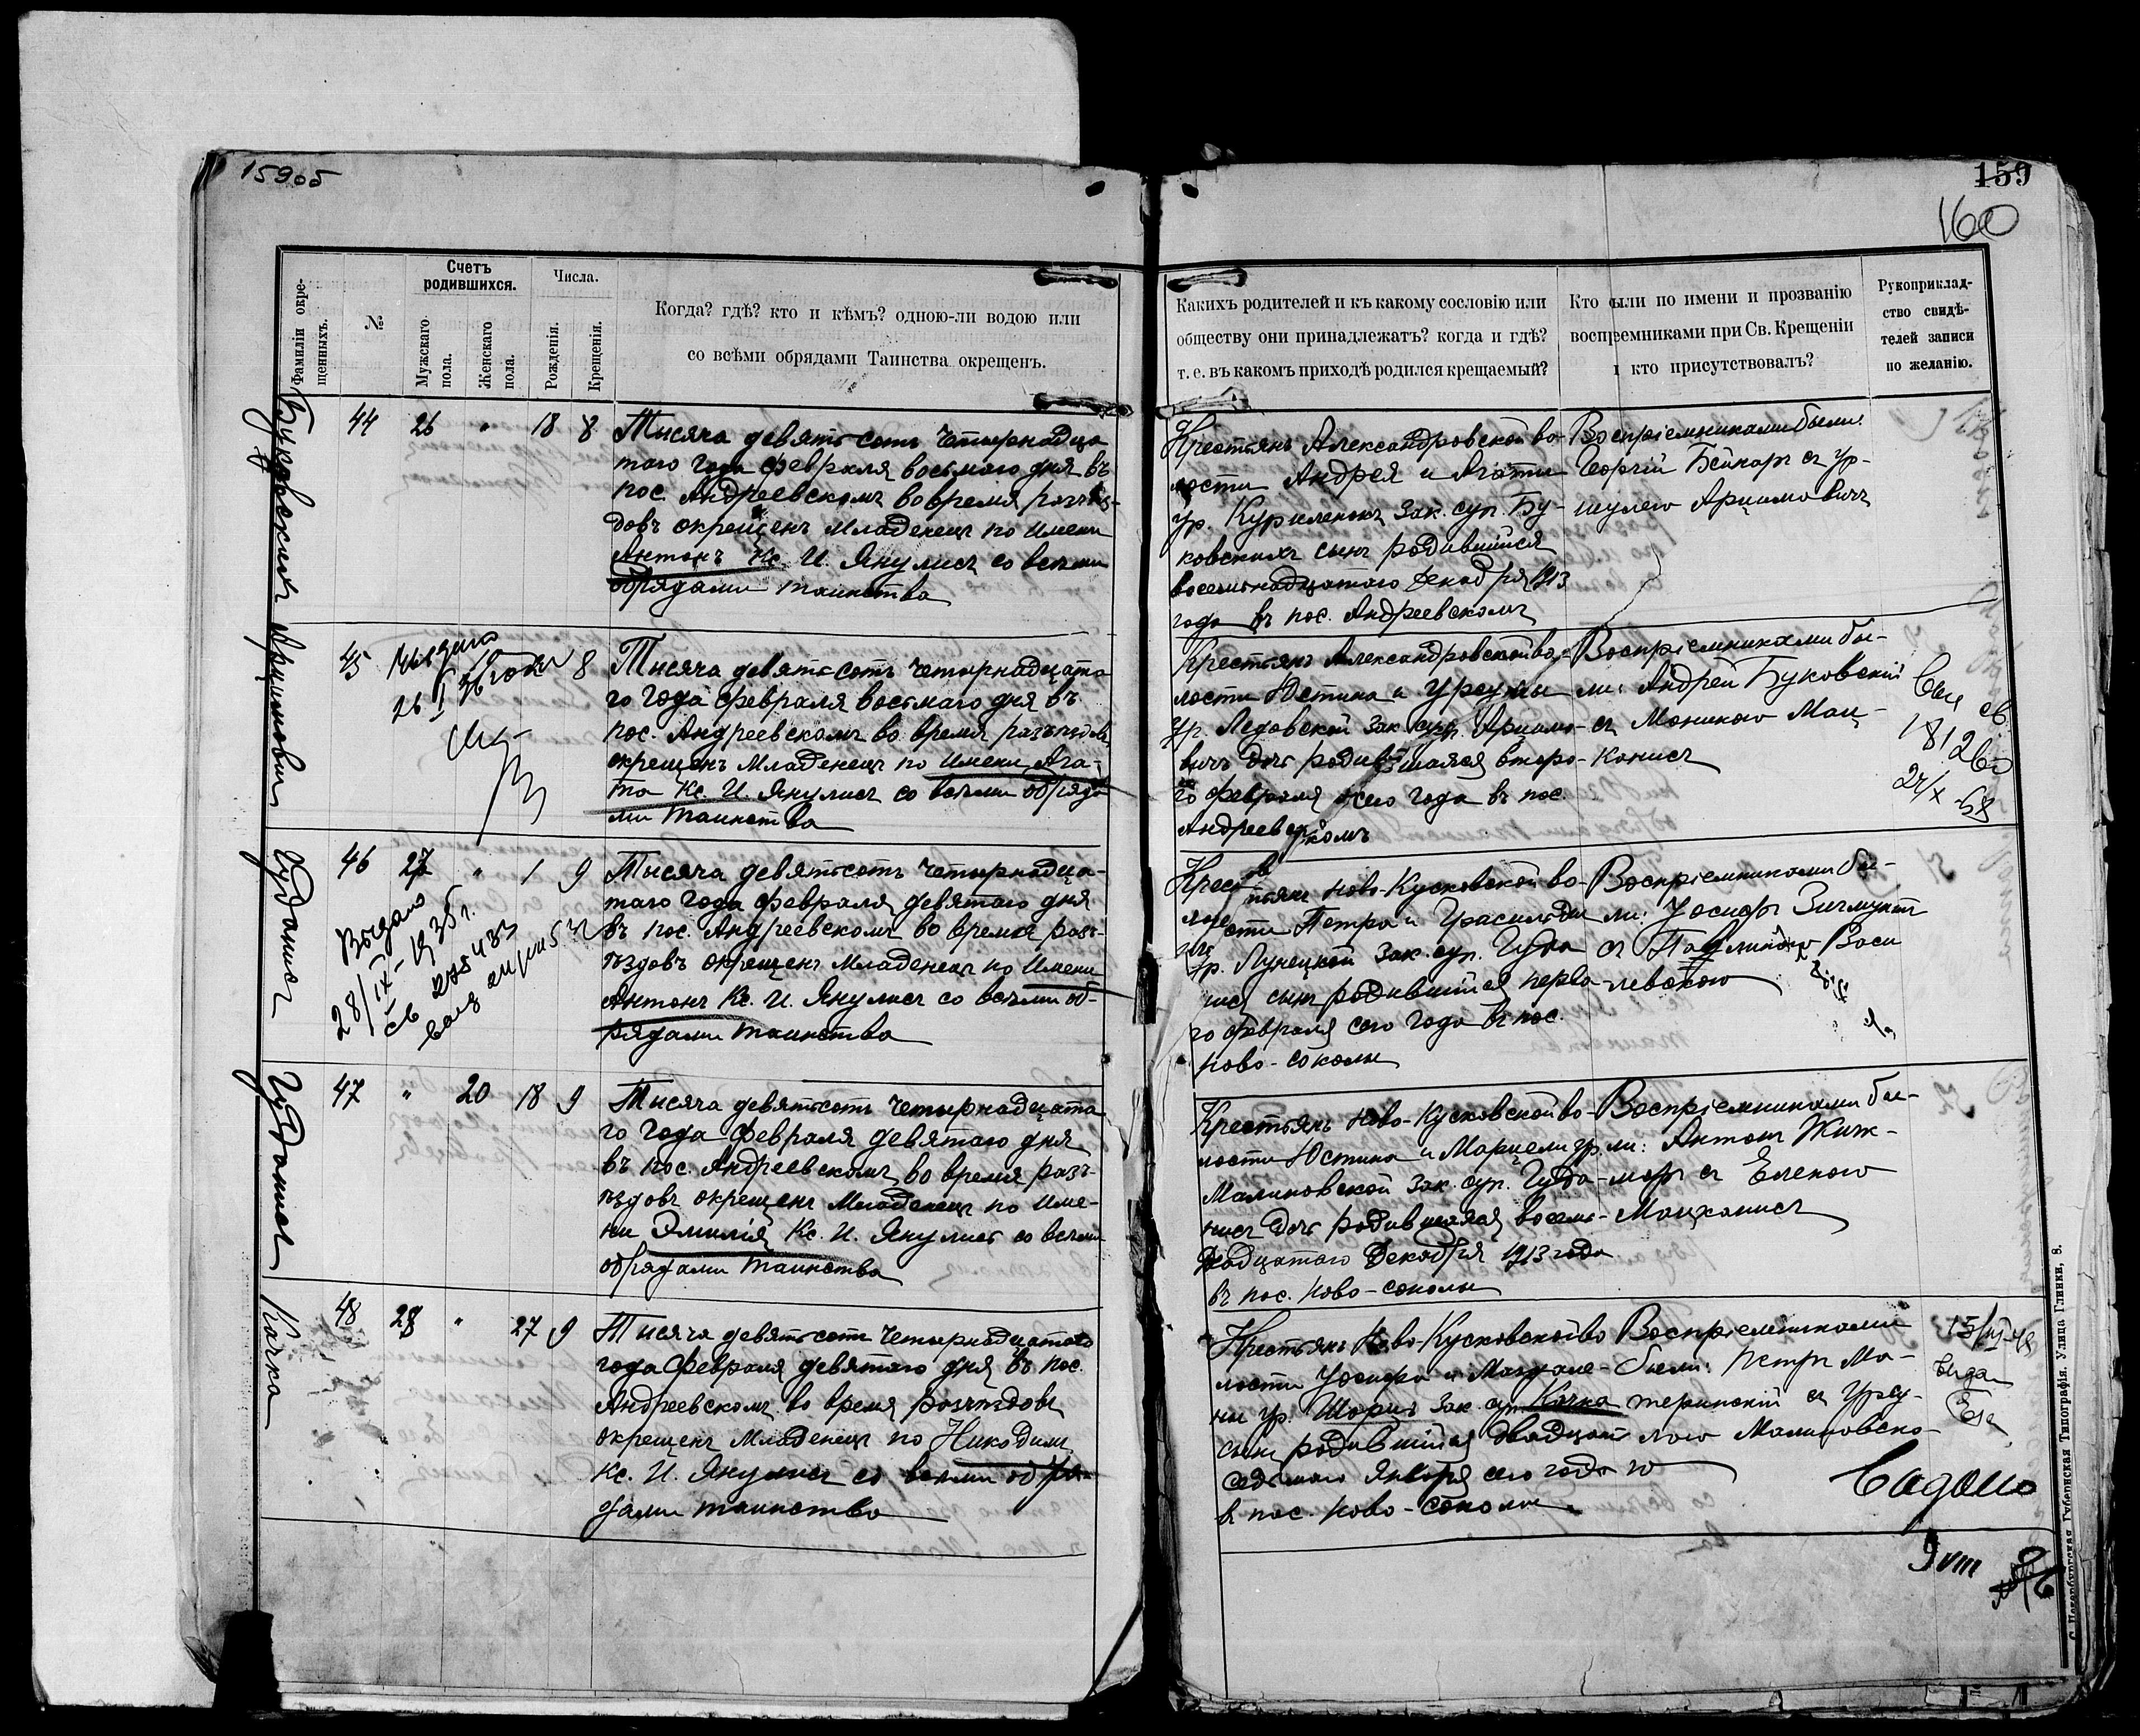 159об
159
160
Фамиліи окре-
щенныхъ.
№
Счетъ
родившихся.
Мужскаго
пола.
Женскаго
пола.
Числа.
Рожденія.
Крещенія.
Когда? гдѣ? кто и кѣмъ? одною-ли водою или
со всѣми обрядами Таинства окрещенъ.
Какихъ родителей и къ какому сословію или
обществу они принадлежатъ? когда и гдѣ?
т. е. въ какомъ приходѣ родился крещаемый?
Кто были по имени и прозванію
воспреемниками при Св. Крещеніи
и кто присутствовалъ?
Рукоприклад-
ство свидѣ-
телей записи
по желанію.
Буковскихъ
44 26 " 18 8
Тысяча девятьсотъ четырнадца
таго года февраля восьмаго дня въ
пос. Андреевскомъ во время разъѣз-
довъ окрещенъ младенецъ по имени
Антонъ Кс. И. Янулисъ со всѣми
обрядами таинства
Крестьянъ Александровской во-
лости Андрея и Агаты
ур. Куриленокъ зак. суп. Бу-
ковскихъ сынъ родившійся
восемнадцатаго декабря 1913
года въ пос. Андреевскомъ
Воспріемниками были:
Георгій Бейнаръ съ Ур-
шулею Арцимовичъ
Арцимовичъ
45
Выдано
26 I 36 года
8
Тысяча девятьсотъ четырнадцата
го года февраля восьмаго дня въ
пос. Андреевскомъ во время разъѣздовъ
окрещенъ младенецъ по имени Ага-
та Кс. И. Янулисъ со всѣми обряда
ми таинства
Крестьянъ Александровской во-
лости Юстина и Урсулы
ур. Ледовской зак. суп. Арцимо-
вичъ дочь родившаяся второ-
го февраля сего года въ пос.
Андреевскомъ
Воспріемниками бы-
ли: Андрей Буковскій
съ Моникою Мац-
канисъ
24/X -58
Гуданисъ
46 27 " 1 9
Выдано
28/IX-1935 г.
Тысяча девятьсотъ четырнадца-
таго года февраля девятаго дня
въ пос. Андреевскомъ во время разъ-
ѣздовъ окрещенъ младенецъ по имени
Антонъ Кс. И. Янулисъ со всѣми об-
рядами таинства
Крестьянъ Ново-Кусковской во-
лости Петра и
ур. Лунецкой зак. суп. Гуда
нисъ сынъ родившійся перва-
го февраля сего года въ пос.
Ново-соколы
Воспріемниками бы-
ли: Іосифъ Зигмунтъ
съ Павлиною Васи
левскою
Гуданисъ
47 " 20 18 9
Тысяча девятьсотъ четырнадцата
го года февраля девятаго дня
въ пос. Андреевскомъ во время разъ-
ѣздовъ окрещенъ младенецъ по име-
ни Эмилія Кс. И. Янулисъ со всѣми
обрядами таинства
Крестьянъ Ново-Кусковской во-
лости Юстина и Марцели ур
Малиновской зак. суп. Гуда-
нисъ дочь родившаяся восем-
надцатаго декабря 1913 года
въ пос. Ново-соколы
Воспріемниками бы-
ли: Антонъ Жиж-
моръ съ Еленою
Мацканисъ
Качка
48 28 " 27 9
Тысяча девятьсотъ четырнадцатаго
года февраля девятаго дня въ пос.
Андреевскомъ во время разъѣздовъ
окрещенъ младенецъ по Никодимъ
Кс. И. Янулисъ со всѣми обря-
дами таинства
Крестьянъ Ново-Кусковской во
лости Іосифа и Магдале-
ны ур. Шорисъ зак. суп. Качка
сынъ родившійся двадцать
седьмаго января сего года
въ пос. Ново-соколы
Воспріемниками
были: Петръ Ма-
теринскій съ Урсу-
лою Малиновско-
ю
С.-Петербургская Губернская Типографія. Улица Глинки, 8.